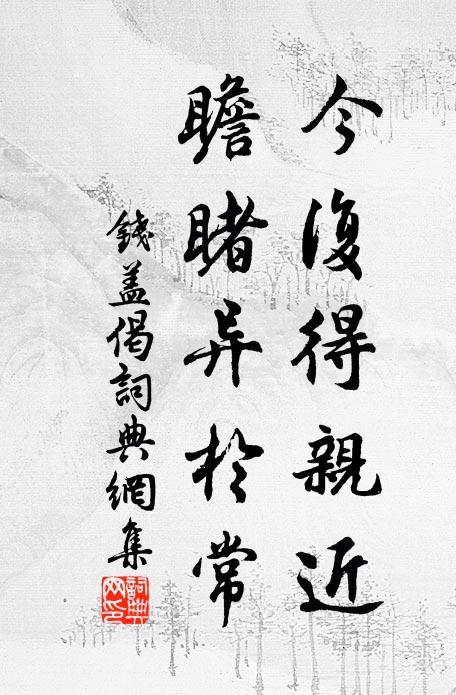 今復得親近
瞻睹异於常
錢盖偈詞典網集
詞典
网印